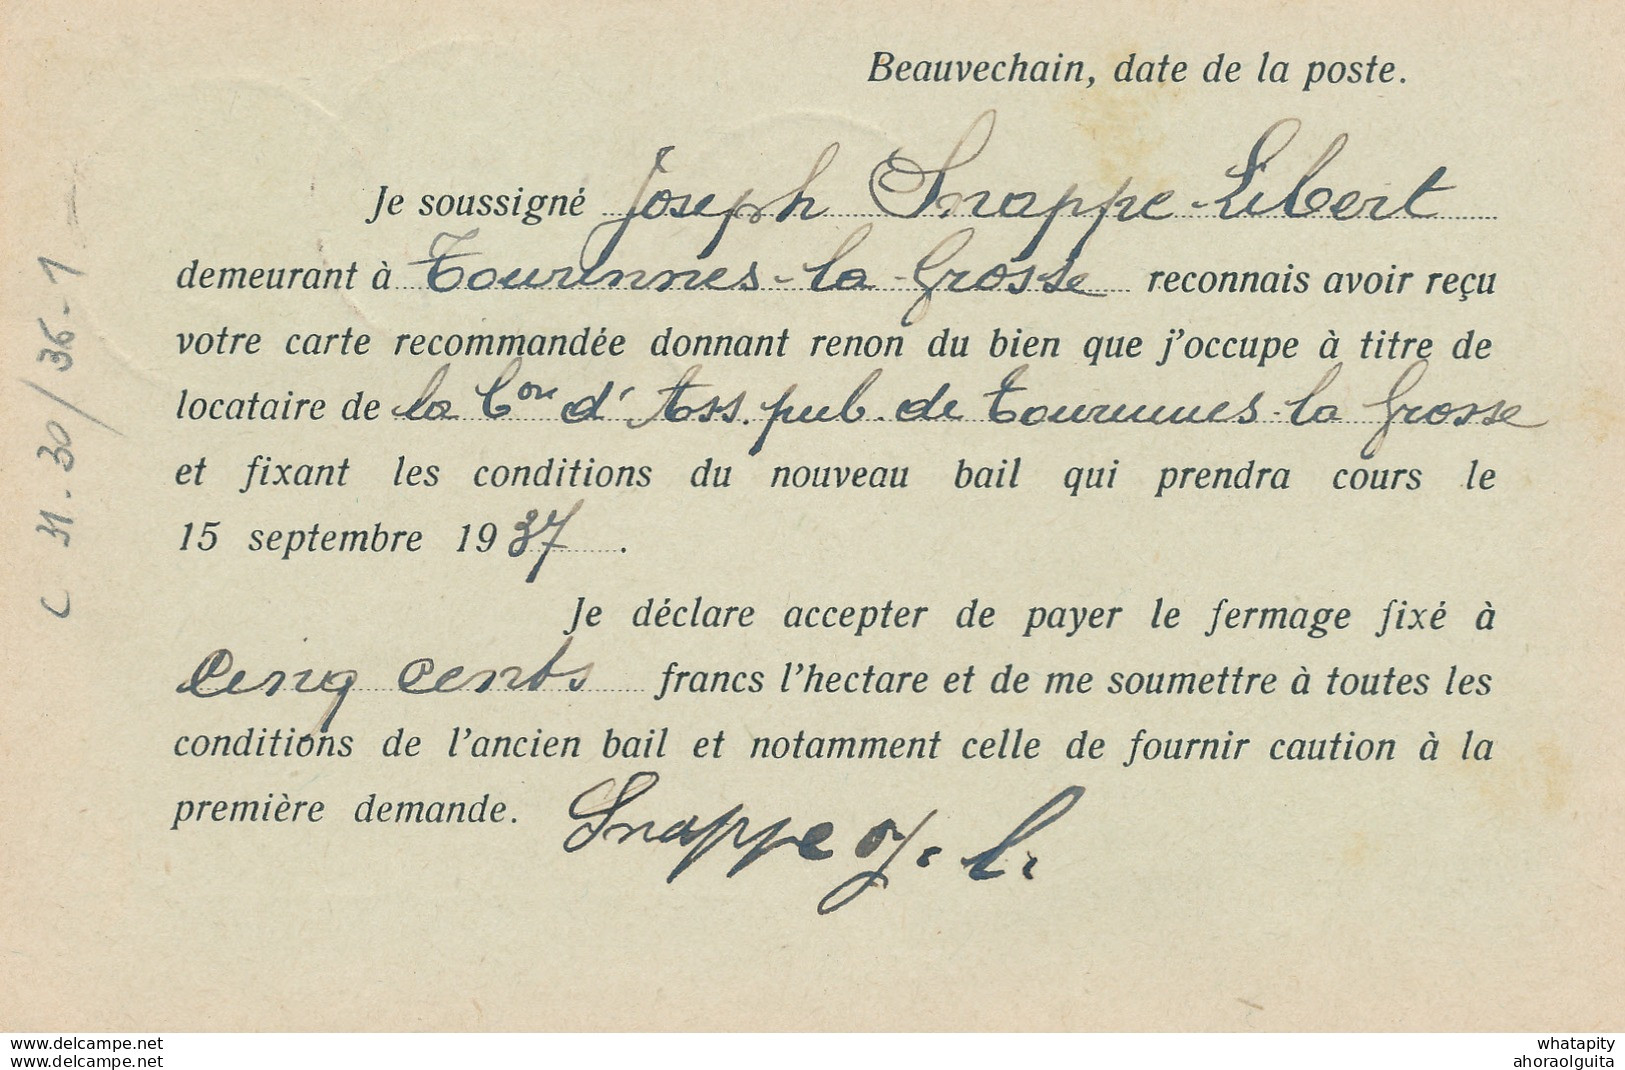 Beauvechain, date de la poste.
Je soussigné Joseph Snappe-Libert
demeurant à Tourinnes-la-Grosse reconnais avoir reçu
votre carte recommandée donnant renon du bien que j'occupe à titre de
locataire de la Con d'Ass. pub. de Tourinnes-la Grosse
et fixant les conditions du nouveau bail qui prendra cours le
15 septembre 1937.
Je déclare accepter de payer le fermage fixé à
Cinq cents francs l'hectare et de me soumettre à toutes les
conditions de l'ancien bail et notamment celle de fournir caution à la
première demande. Snappe
C 31.30/36-1
delcampe.net
whatapity
ahoraolguita